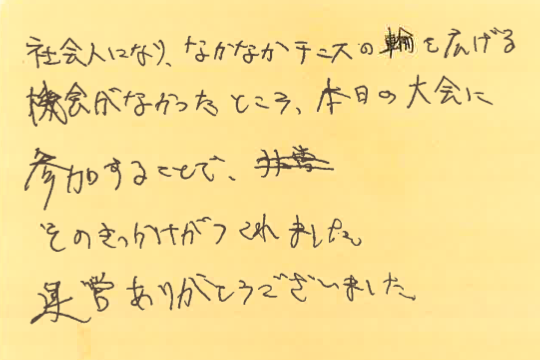 社会人になり、なかなかテニスの輪を広げる
機会がなかったところ、本日の大会に
参加することで、
そのきっかけがつくれました。
運営ありがとうございました。